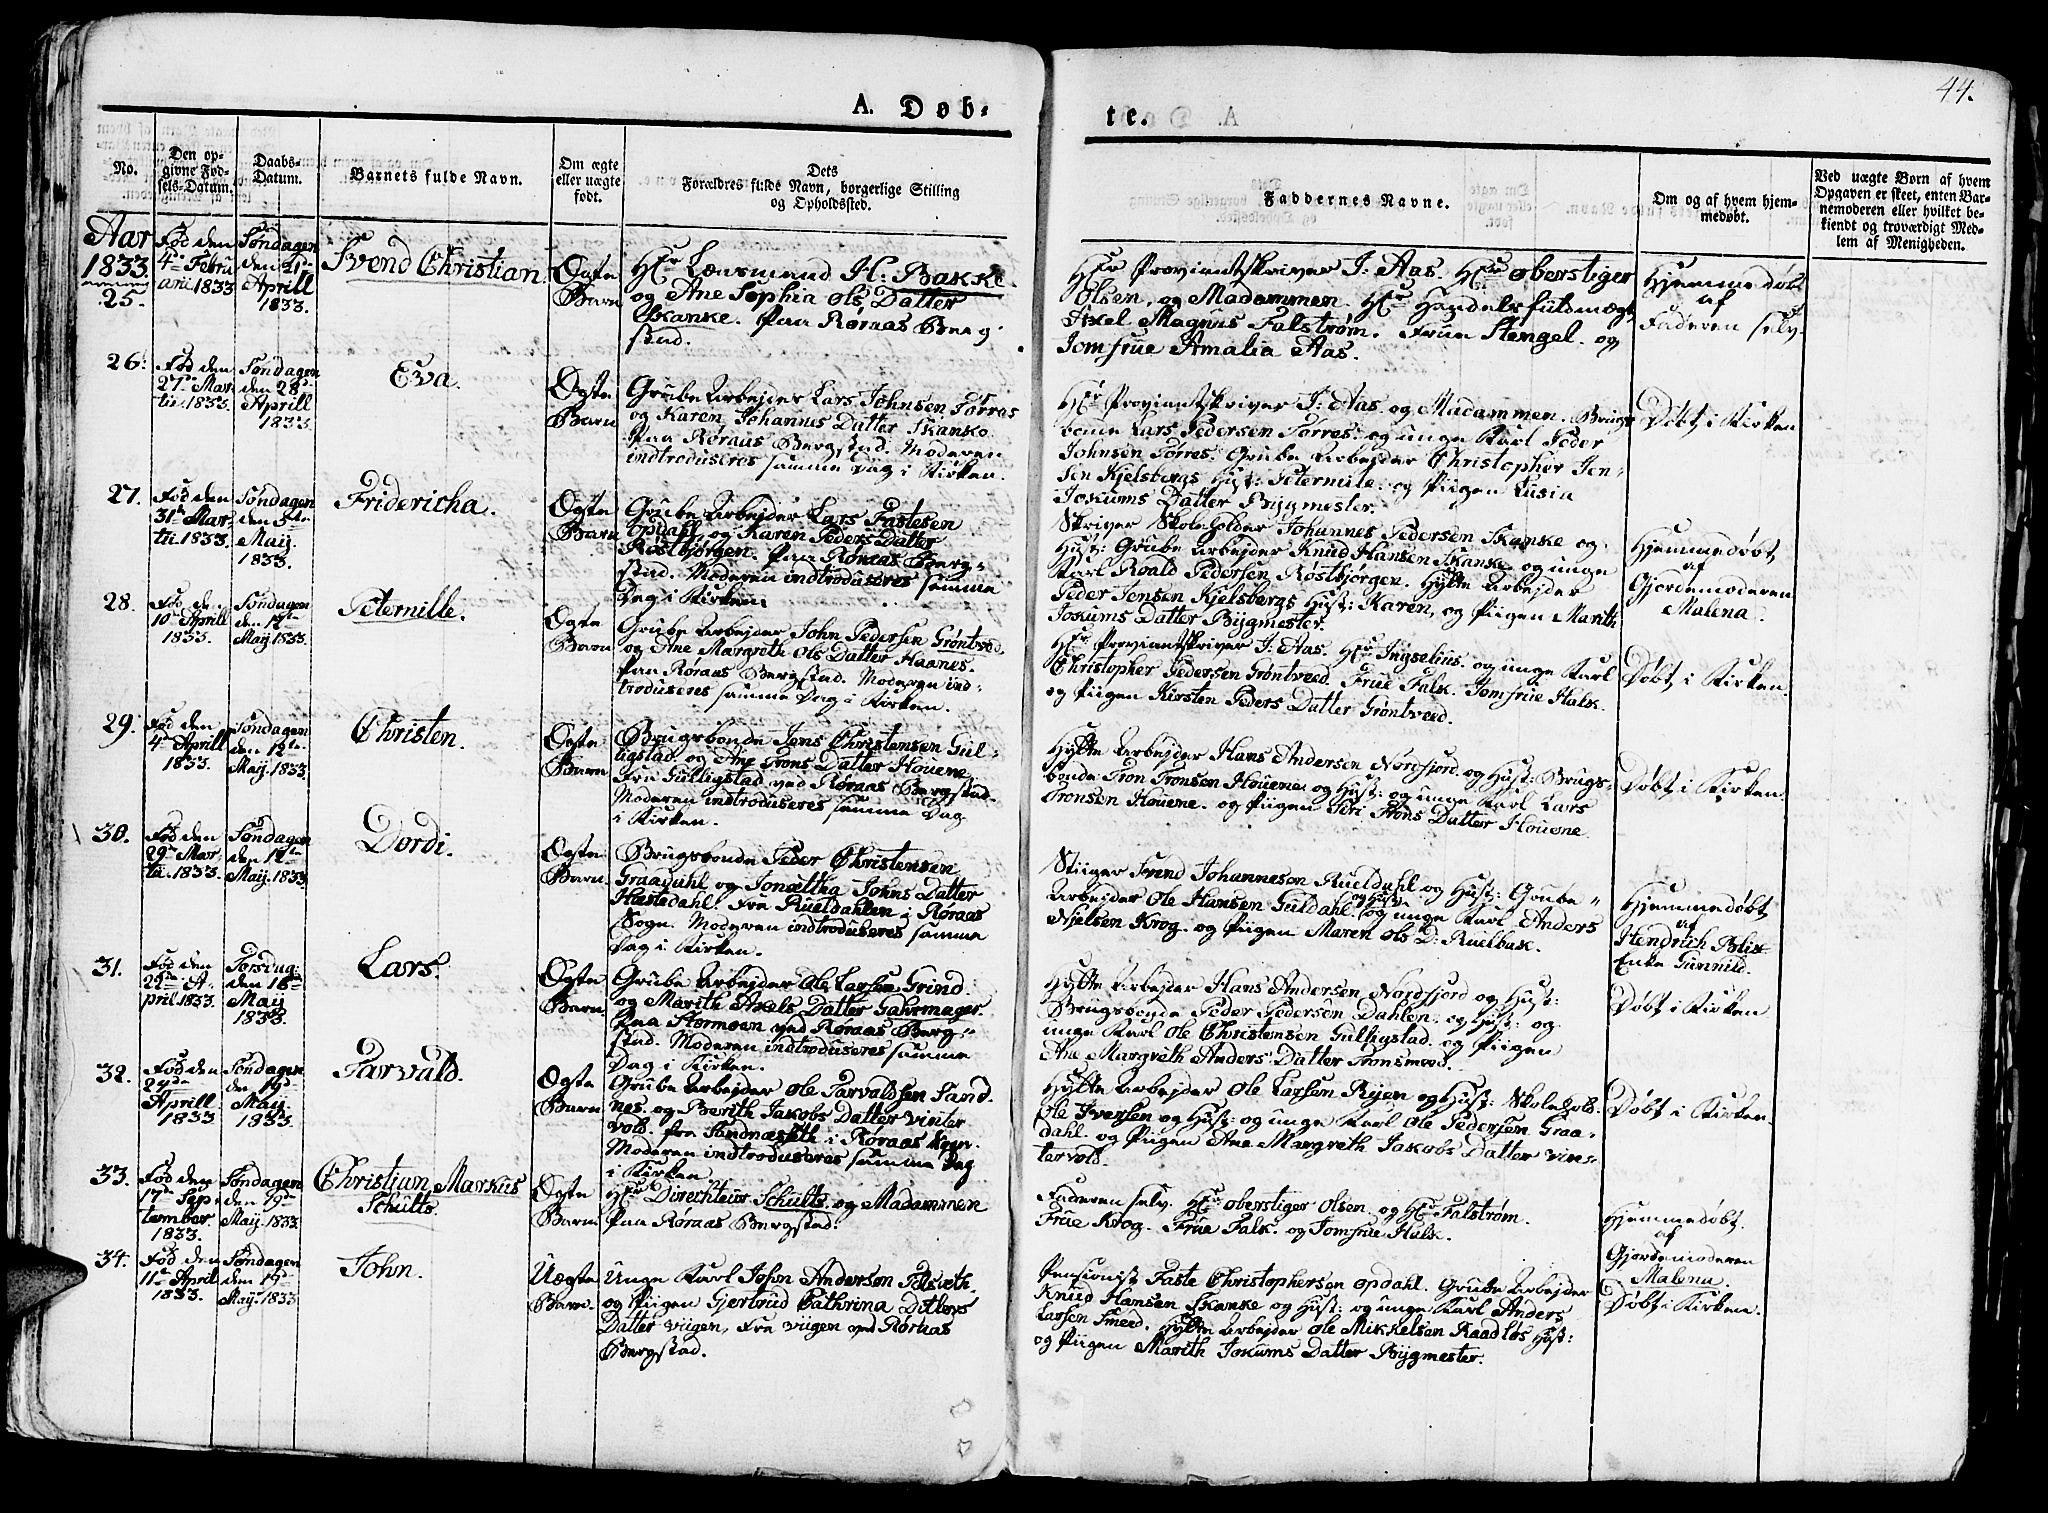 44.
A. Døb-
te.
No.
Den op-
givne Fød-
sels-Datum.
Daabs-
Datum.
Barnets fulde Navn.
Om ægte
eller uægte
født.
Dets
Forældres fulde Navn, borgerlige Stilling
og Opholdssted.
Faddernes Navne.
Om og af hvem hjem-
medøbt.
Ved uægte Børn af hvem
Opgaven er skeet, enten Bar-
nemoderen eller hvilket be-
kiendt og troværdigt Med-
lem af Menigheden.
Aar
1833.
25.
Fød den
4de Febru
arii 1833
Søndagen
den 21de
Aprill
1833.
Svend Christian.
Ægte
Barn
Hr Lænsmand H: Bakke.
og Ane Sophia Ols Datter
Skanke. Paa Røraas Berg
stad.
Hr Proviantskriver J: Aas. Hr oberstiger
Olsen, og Madammen. Hr Handelsfuldmægt
Axel Magnus Falstrøm. Frue Stengel. og
Jomfrue Amalia Aas.
Hjemmedøbt
af
Faderen selv.
26.
Fød den
27de Mar
tii. 1833.
Søndagen
den 28de
Aprill
1833.
Eva.
Ægte
Barn
Grube Arbejder Lars Johnsen Torras
og Karen Johannes Datter Skanke.
Paa Røraas Bergstad. Moderen
indtroduseres samme Dag i Kirken.
Hr Proviantskriver J: Aas. og Madammen. Brugs
bonde Lars Pedersen Torres. og unge Karl Peder
Johnsen Torres. Grube Arbejder Christopher Jen-
sen Kjelsbergs Hust: Petermile. og Piigen Lusia
Jokums Datter Bygmester.
Døbt i Kirken
27.
Fød den
31te Mar-
tii. 1833.
Søndagen
den 5te
Maij.
1833.
Fridericha.
Ægte
Barn
Grube Arbejder Lars Fastesen
Opdahl, og Karen Peders Datter
Røstbjørgen. Paa Røraas Berg-
stad. Moderen indtroduseres samme
Dag i Kirken.
Skriver Skoleholder Johannes Pedersen Skanke og
Hust: Grube Arbejder Knud Hansen Skanke, og unge
Karl Roald Pedersen Røstbjørgen. Hytte Arbejder
Peder Jensen Kjelsbergs Hust: Karen, og Piigen Marith
Jokums Datter Bygmester.
Hjemmedøbt
af
Gjordemoderen
Malena.
28.
Fød den
10de Aprill
1833.
Søndagen
den 12te
Maij 1833.
Peternille.
Ægte
Barn
Grube Arbejder John Pedersen Grøntved
og Ane Margreth Ols Datter Haanes.
Paa Røraas Bergstad. Moderen ind-
troduseres samme Dag i Kirken.
Hr Proviantskriver J: Aas. Hr Ingselius. og unge Karl
Christopher Pedersen Grøntveed. Frue Falk. Jomfrue Halk.
og Piigen Kirsten Peders Datter Grøntveed.
Døbt i Kirken.
29.
Fød den
4de Aprill
1833.
Søndagen
den 12te
Maij. 1833.
Christen.
Ægte
Barn
Brugsbonde Jens Christensen Gul-
ligstad. og Ane Trons Datter Houene.
fra Gulligstad ved Røraas Bergstad.
Moderen indtroduseres samme Dag
i Kirken.
Hytte Arbejder Hans Andersen Nordfjord. og Hust: Brugs-
bonde Tron Tronsen Houene og Hust: og unge Karl Lars
Tronsen Houene. og Piigen Siri Trons Datter Houene.
Døbt i Kirken.
30.
Fød den
29de Mar
tii. 1833.
Søndagen
den 12te
Maij. 1833
Dordi.
Ægte
Barn.
Brugsbonde Peder Christensen
Graadahl og Jonettha Johns Datter
Hæstedahl. fra Rueldahlen i Røraas
Sogn. Moderen indtroduseres samme
Dag i Kirken.
Stiiger Svend Johannesen Rueldahl og Hust: Grube-
Arbejder Ole Hansen Guldahl. og Hust: og unge Karl Anders
Njelsen Krog. og Piigen Maren Ols D: Ruelbak.
Hjemmedøbt
af
Hendrich Blix
Enke Gunnild.
31.
Fød den
22de A-
pril. 1833.
Torsdag:
den 16de
Maij
1833.
Lars.
Ægte
Barn
Grube Arbejder Ole Larsen Grind.
og Marith Axels Datter Garmager.
Paa Stormoen ved Røraas Berg-
stad. Moderen indtroduseres samme
Dag i Kirken.
Hytte Arbejder Hans Andersen Nordfjord og Hust:
Brugsbonde Peder Pedersen Dahlen. og Hust: og
unge Karl Ole Christensen Gulligstad. og Piigen
Ane Margreth Anders Datter Tronsmoed.
Døbt i Kirken
32.
Fød den
24de
Aprill
1833
Søndagen
den 19de
Maij
1833.
Tarvald.
Ægte
Barn
Grube Arbejder Ole Tarvaldsen Sand-
nes. og Berith Jakobs Datter Vinter
vold. fra Sandnæsseth i Røraas Sogn.
Moderen indtroduseres samme Dag
i Kirken.
Hytte Arbejder Ole Larsen Ryen og Hust: Skolehold.
Ole Iversen og Hust: og unge Karl Ole Pedersen Graa-
dahl. og Piigen Ane Margreth Jakobs Datter Vin-
tervold.
Døbt i Kirken.
33.
Fød den
17de Sep
tember.
1833.
Søndagen
den 19de
Maij. 1833
Christian Markus
Schults.
Ægte
Barn
Hr Direchteur Schults. og Madammen
Paa Røraas Bergstad.
Faderen selv. Hr oberstiger Olsen. og Hr Falstrøm.
Frue Krog. Frue Falk. og Jomfrue Halk.
Hjemmedøbt.
af
Gjordemoderen
Malena.
34.
Fød den
11te April
1833.
Søndagen
den 19de
Maij. 1833
John.
Uægte
Barn.
Unge Karl John Andersen
og Piigen Gjertrud Cathrina Ditlevs
Datter Viigen, fra Viigen ved Røraas
Bergstad.
Pensionist Faste Christophersen Opdahl. Grube Arbejder
Knud Hansen Skanke og Hust: og unge Karl Anders
Larsen Smed. Hytte Arbejder Ole Mikkelsen Raadløs Hust:
og Piigen Marith Jokums Datter Bygmester.
Døbt i Kirken.